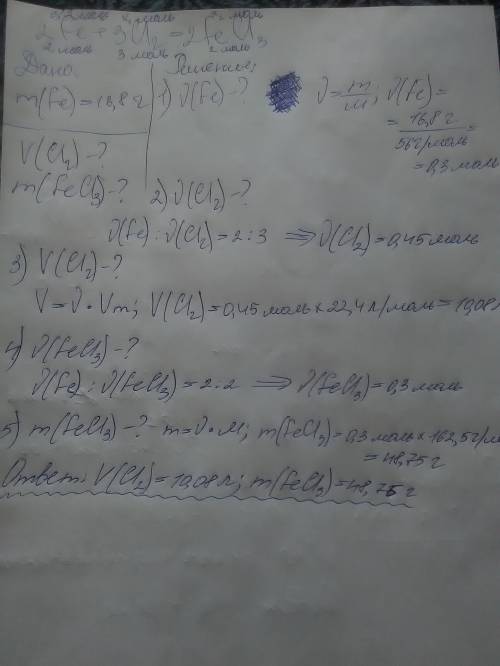 2Fe + 3Cl₂ = 2FeCl₃
2 моль 3 моль 2 моль
Дано: Решение:
m(Fe) = 16,8 г 1) ν(Fe) - ? ν = m/M; ν(Fe) =
= 16,8 г / 56 г/моль =
= 0,3 моль
V(Cl₂) - ?
m(FeCl₃) - ? 2) ν(Cl₂) - ?
ν(Fe) : ν(Cl₂) = 2 : 3 ⇒ ν(Cl₂) = 0,45 моль
3) V(Cl₂) - ?
V = ν · Vm; V(Cl₂) = 0,45 моль × 22,4 л/моль = 10,08 л
4) ν(FeCl₃) - ?
ν(Fe) : ν(FeCl₃) = 2 : 2 ⇒ ν(FeCl₃) = 0,3 моль
5) m(FeCl₃) - ? m = ν · M; m(FeCl₃) = 0,3 моль × 162,5 г/м
= 48,75 г
Ответ: V(Cl₂) = 10,08 л; m(FeCl₃) = 48,75 г